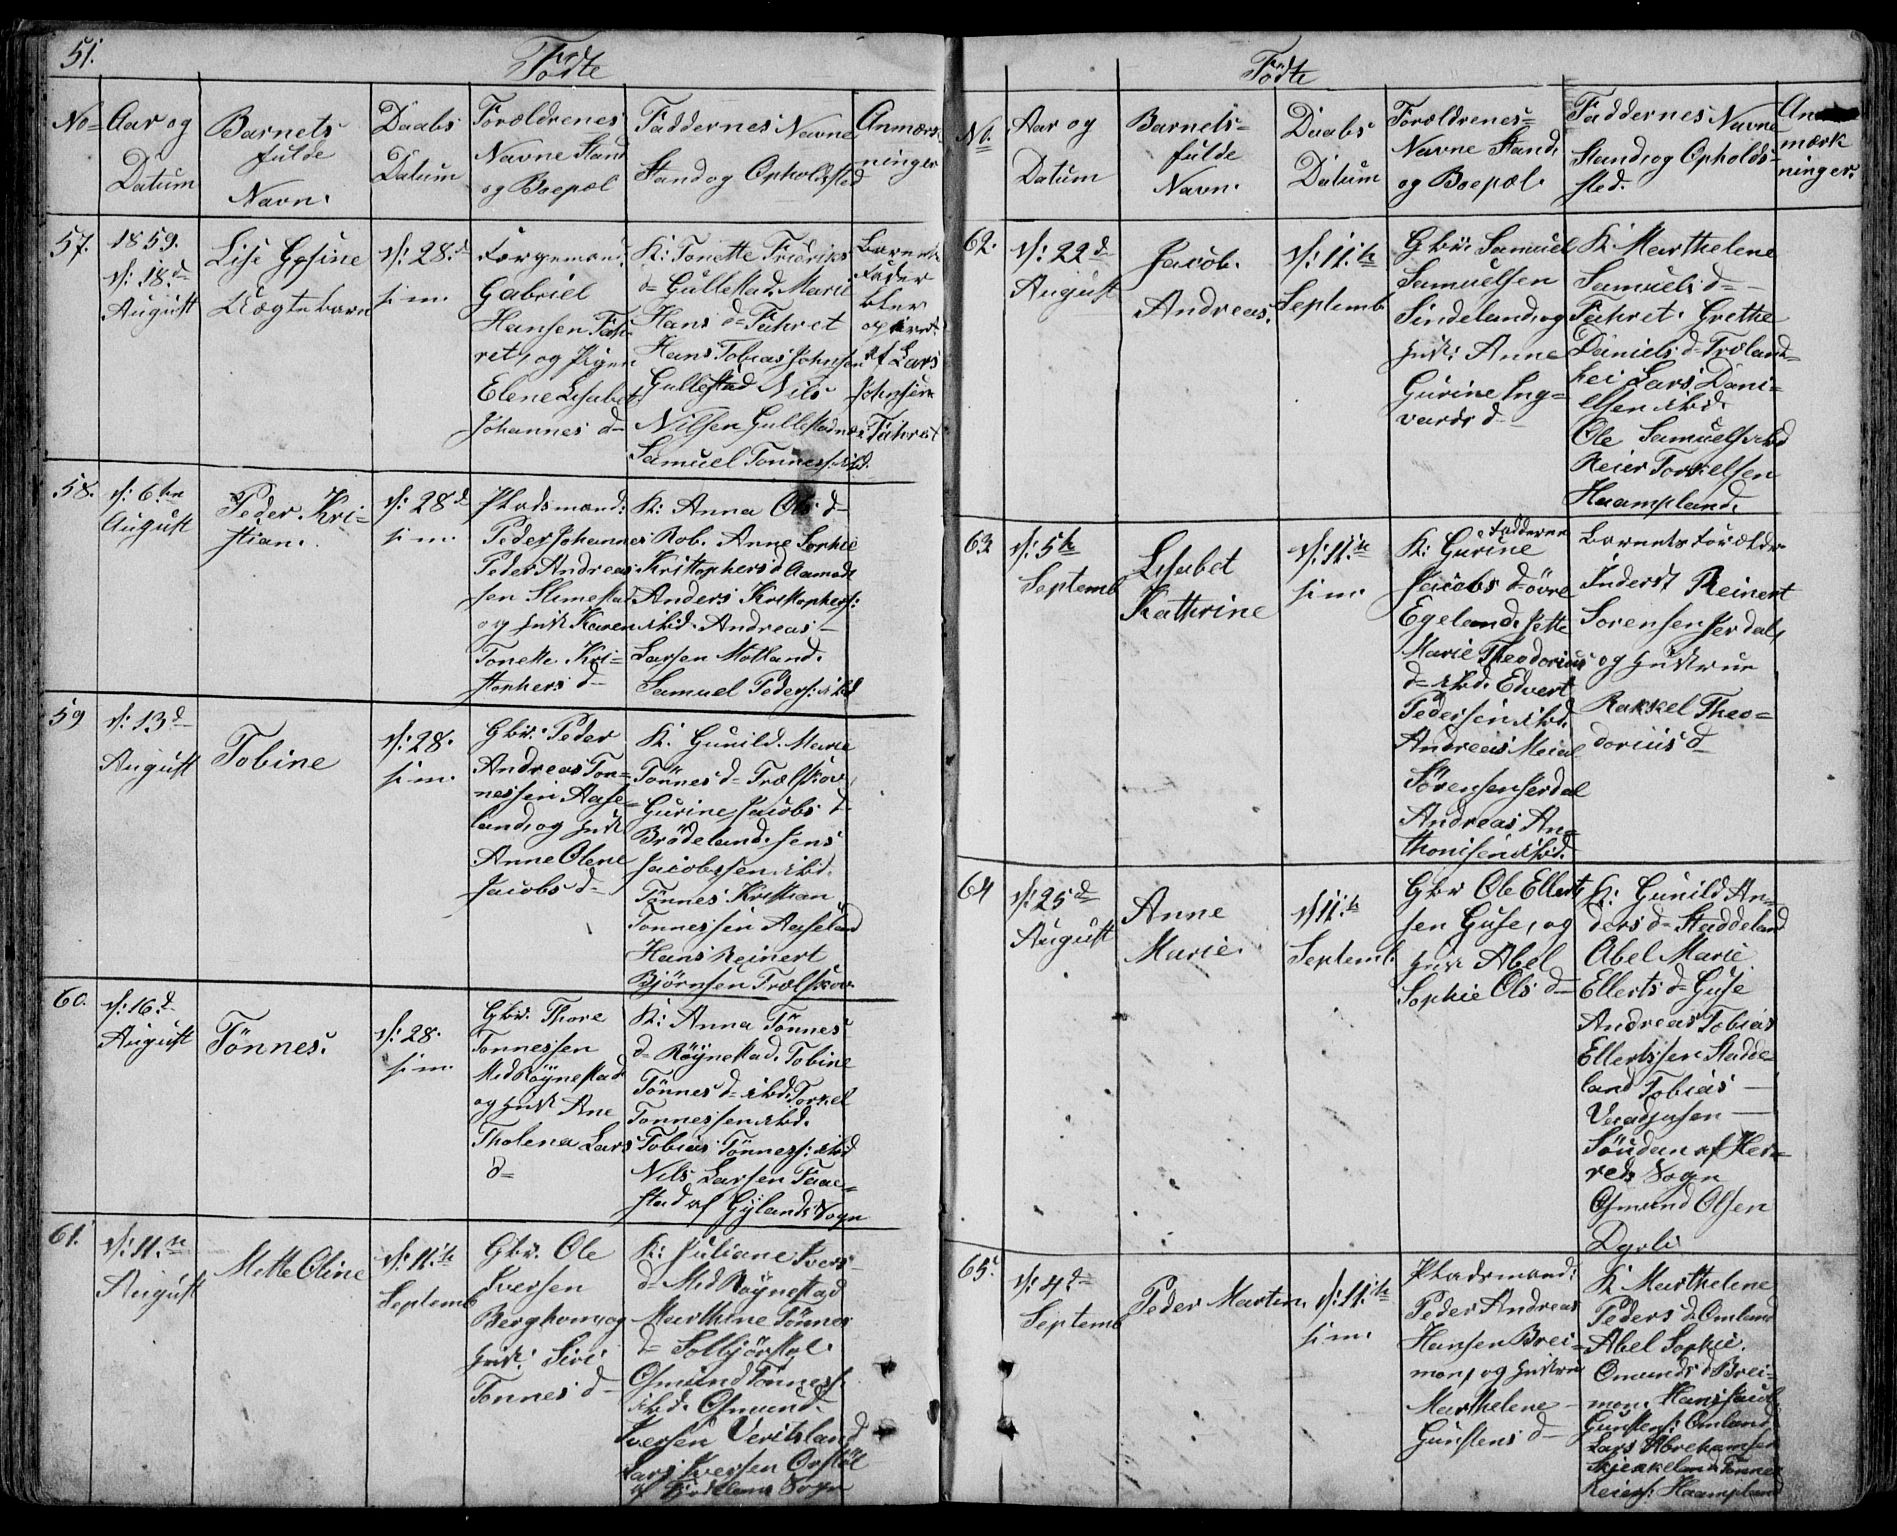 51.
Fødte
No=
Aar og
Datum
Barnets
fulde
Navn.
Daabs
Datum
Forældrenes
Navne Stand
og Boepæl
Faddernes Navne
Stand og Opholdsted
Anmærk-
ninger
57.
1859.
d: 18.d
August
Lise Gesine
Uægte barn
d: 28.d
s: m:
Gabriel
Hansen Fah-
ret, og Pigen
Elene Lisabet
Johannes d=
K: Tonette Fridriks
d= Gullestad. Marie
Hans d= Fahret
Hans Tobias Johnsen
Gullestad Nils
Nilsen Gullestadnæs
Samuel Tonness: ibd.
Barnets
Fader
blev
af Lars
Johnsen
Fahret
58.
d: 6.te
August
Peder Kri=
stian.
d: 28d
s: m:
Pladsmand:
Peder Johannes
Peder Andreas-
sen Slimestad
og Hust: Karen
Tonette Kri=
stophers d=
K: Anna Ols d=
Rob. Anne Sophie
Kristophers d Aamodt
Anders Kristophers:
ibd. Andreas
Larsen Motland.
Samuel Peders: ibd
59
d: 13d
August
Tobine
d: 28.
s: m:
Gbr. Peder
Andreas Ton=
nessen Aase=
land, og Hust
Anne Olene
Jacobs d=
K: Gunild Marie
Tönnes d= Trælskov
Gurine Jacobs d
Brödeland. Jens
Jacobssen ibd.
Tönnes Kristian
Tonnessen Aaseland
Hans Reinert
Bjørnsen Trælskov
60.
d: 16.d
August
Tönnes.
d: 28.
s: m:
Gbr. Thore
Tonnessen
Med Röynestad
og Hust Ane
Tholena Lars
d=
K: Anna Tönnes
d= Röynestad. Tobine
Tönnes d= ibd: Torkel
Tonnessen ibd.
Tobias Tönness: ibd
Nils Larsen Faae-
stad af Gylands Sogn
61.
d: 11.te
August
Mette Oline
d: 11.te
Septemb
Gbr. Ole
Iversen
Berghom, og
Hust: Siri
Tonnes d=
K: Juliane Ivers
d= Med Röynestad
Marthine Tönnes
d= Solbjörstøl.
Osmund Tönness.
ibd. Osmund
Iversen Veritsland
Lars Iversen Orstöl
Sogn
Fødte
No.
Aar og
Datum
Barnets=
fulde
Navn.
Daabs
Datum
Forældrenes=
Navne Stand.
og Boepæl.
Faddernes Navne
Stand, og Opholds-
sted.
An
mærk
ninger.
62.
d: 22d
August
Jacob.
Andreas.
d: 11.te
Septemb
Gbr: Samuel
Samuelsen
Sindeland, og
Hust: Anne
Gurine Ing=
vards d=
K: Marthelene
Samuels d=
Fahret. Grethe
Daniels d= Træland=
hei Lars Dani=
elsen ibd.
Ole Samuels ibd
Reier Torkelsen
Haampland.
63
d: 5te
Septemb
Lisabet
Kathrine
d: 11.te
s: m:
Fadderne
K: Gurine
Jacobs d= övre
Egeland. Jette
Marie Theodorius
d= ibd. Edvert
Pedersen ibd.
Andreas Meial
Sörensen Serdal
Andreas An=
thonisen ibd.
Barnets Forældre
Inderst Reinert
Sorensen Serdal,
og Hustrue
Rakkel Theo=
dorius d=
64
d: 25d
August
Anne
Marie.
d 11.te
Septemb.
Gbr Ole Ellerts
sen Guse, og
Hust Abel
Sophie Ols d=
K: Gunild An-
ders d= Staddeland
Abel Marie
Ellerts d= Guse
Andreas Tobias
Ellertssen Stadde-
land Tobias
Söndan af Her=
reds Sogn
Osmund Olsen
Dyrli
65.
d: 4.d
Septemb
Peder Martin.
d: 11.te
s: m:
Pladsmand:
Peder Andreas
Hansen Brei=
mon, og Hustrue
Marthelene
Gunstens d=
K Marthelene
Peders d. Omland
Abel Sophie.
Omunds d Brei-
mon. Hans Jacob
Gunstens: Omland
Lars Abrehamsen
Skjekkeland. Tönnes
Reiers: Haampland